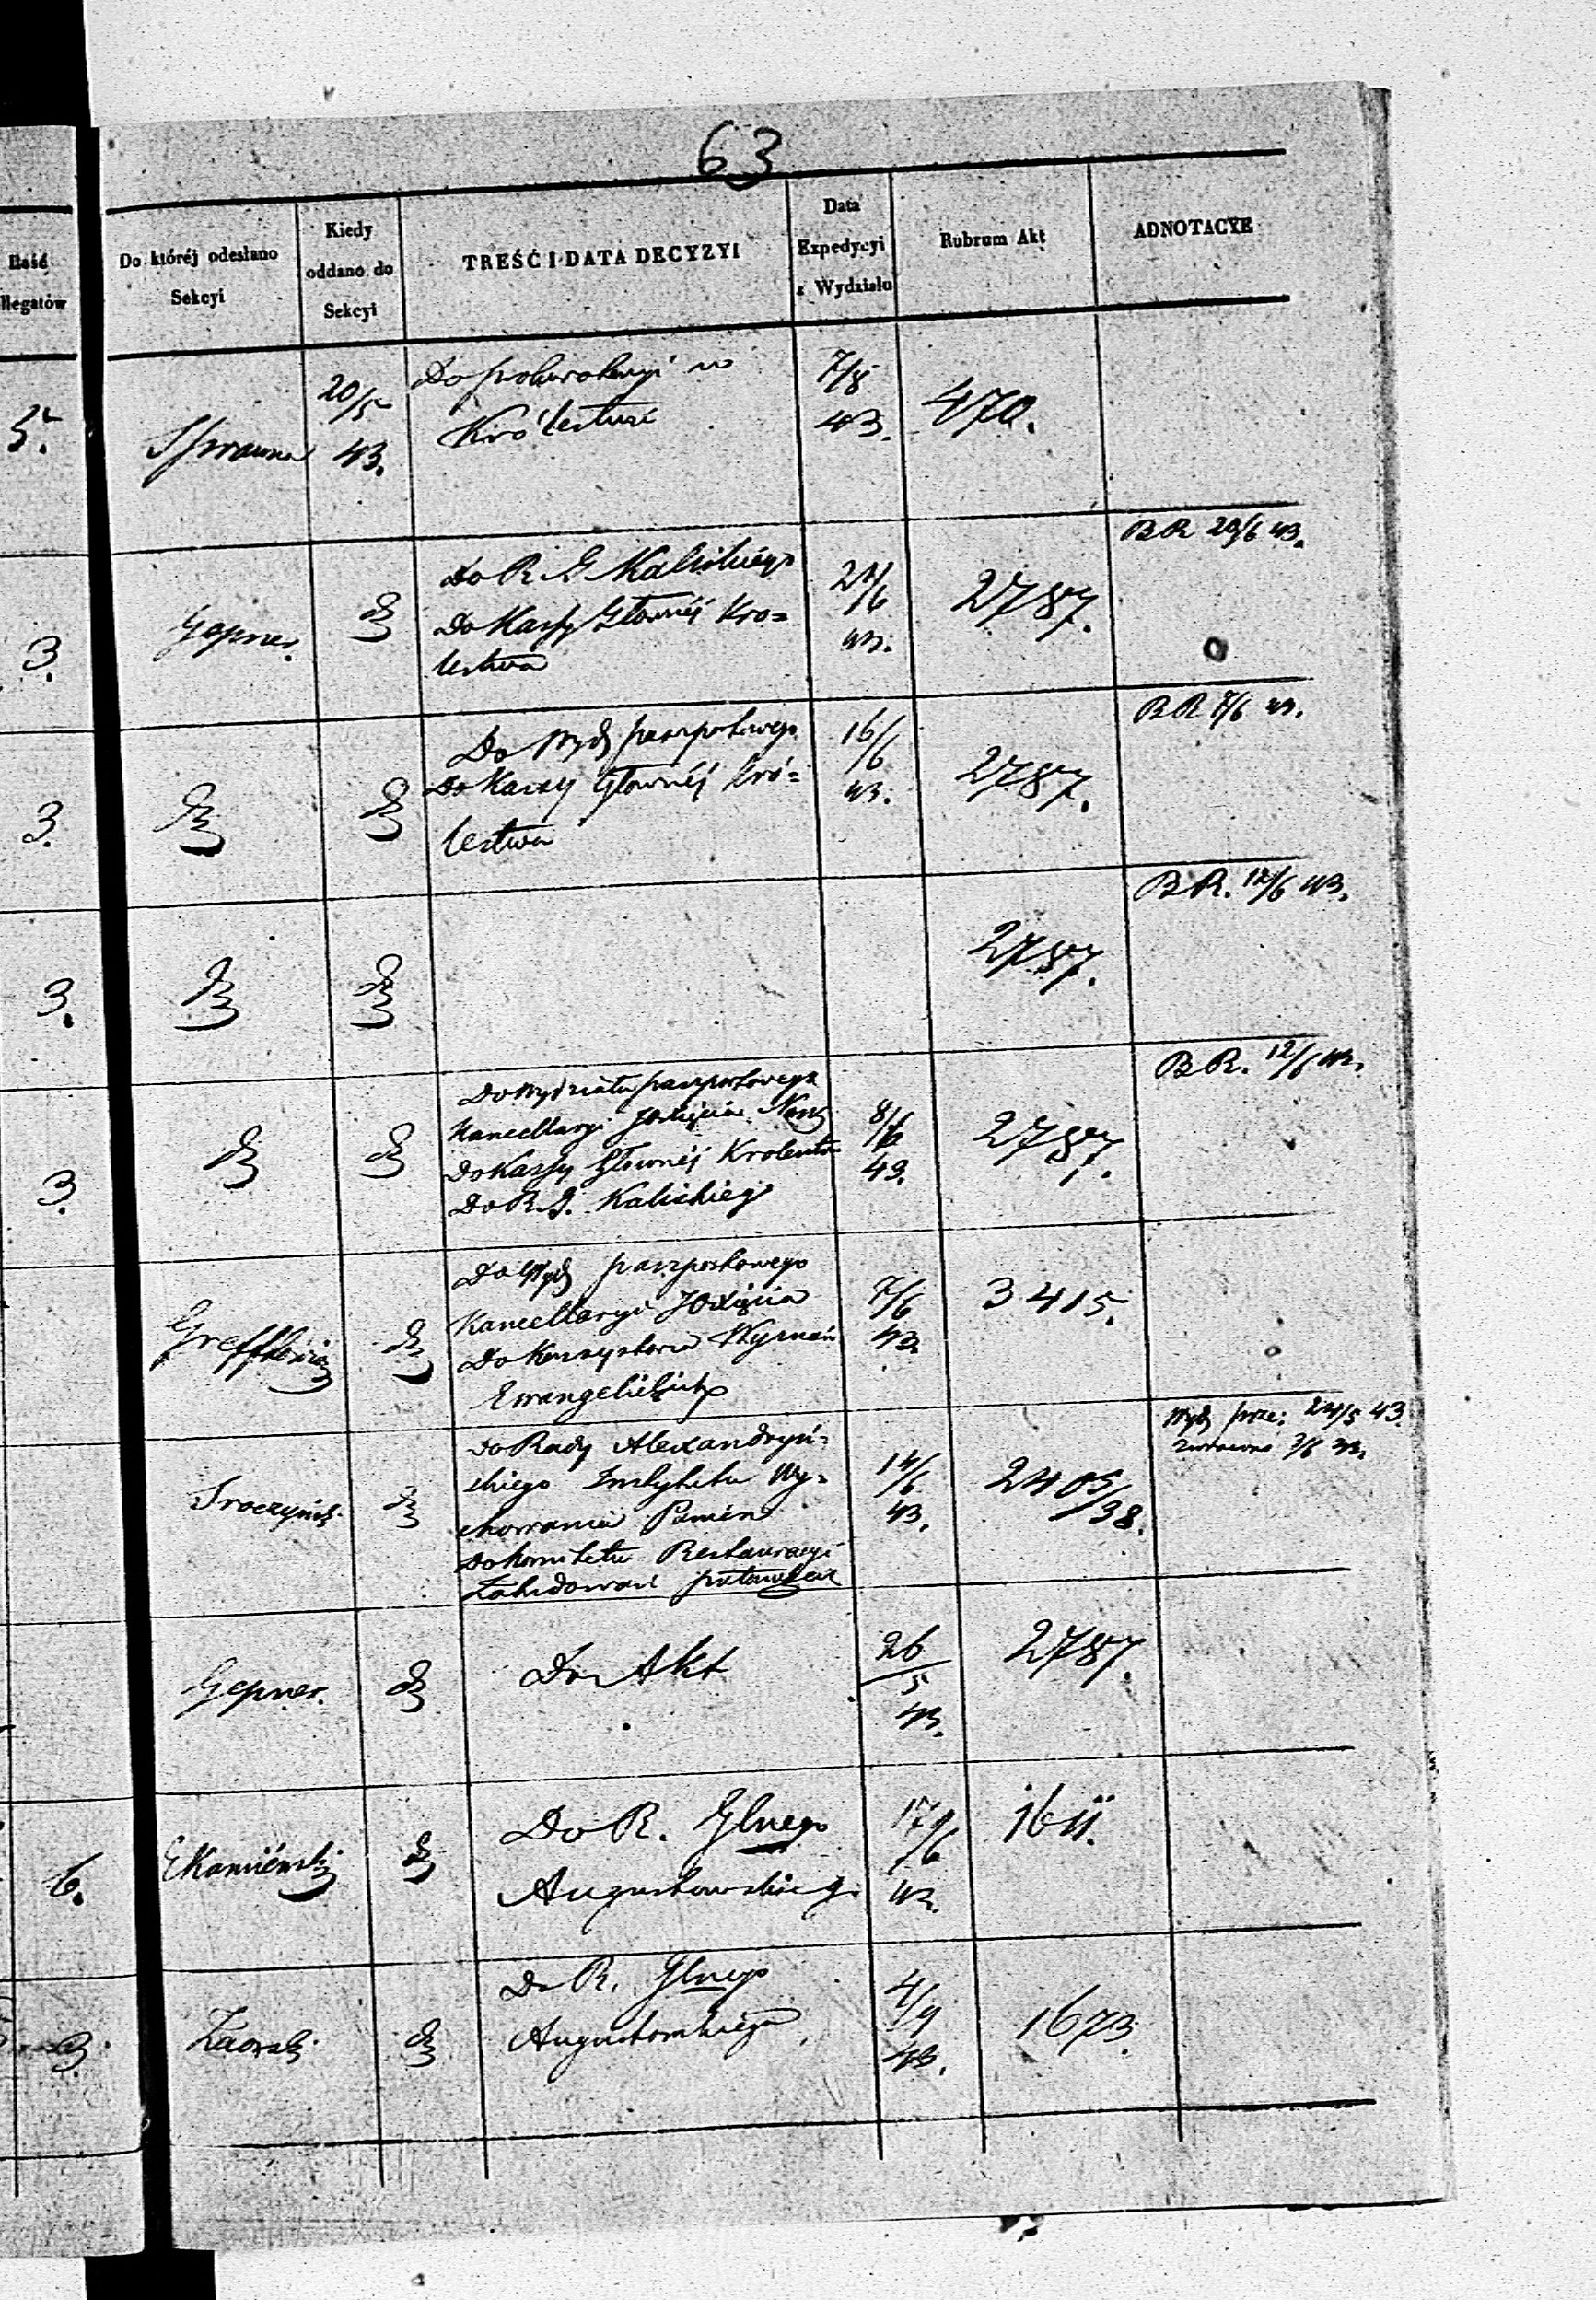 63
Ilość
llegatów
Do któréj odesłano
Sekcyi
Kiedy
oddano do
Sekcyi
TREŚĆ I DATA DECYZYI
Data
Expedycyi
z Wydziału
Rubrum Akt
ADNOTACYE
5.
20/5
43.
Do
w
7/8
43.
470.
3.
Gepner.
Do R. G Kaliskiego
Do Kassy Głównéj Kro=
lestwa
/6
43.
2787.
BR 20/6 43.
3.
Do Wydz paszportowego
Do Kassy Głownéj Kró=
lestwa
16/6
43.
2787.
BR 7/6 43.
3.
2787.
BR. 12/6 43.
3.
Do Wydziału paszportowego
Kancellaryi JOxięcia Nam
Do Kassy Głownéj Krolestwa
Do R. G. Kaliskiego
8/6
43.
2787.
BR. 12/6 43.
Do Wydz paszportowego
Kancellaryi JOxięcia
Do Konsystorza Wyznań
Ewangelickich
7/6
43
3415.
Do Rady Alexandryń=
skiego Instytutu Wy=
chowania Panien
Do Komitetu Restauracyi
Zabudowań
14/6
43.
2405/38.
43.
3/6 43.
Gepner.
Do Akt
26/5
43.
2787.
6.
EKamiéński
Do R. Głnego
Augustowskiego
17/6
43.
1611.
3.
Zaorski
Do R. Głnego
Augustowskiego
4/9
43.
1673.